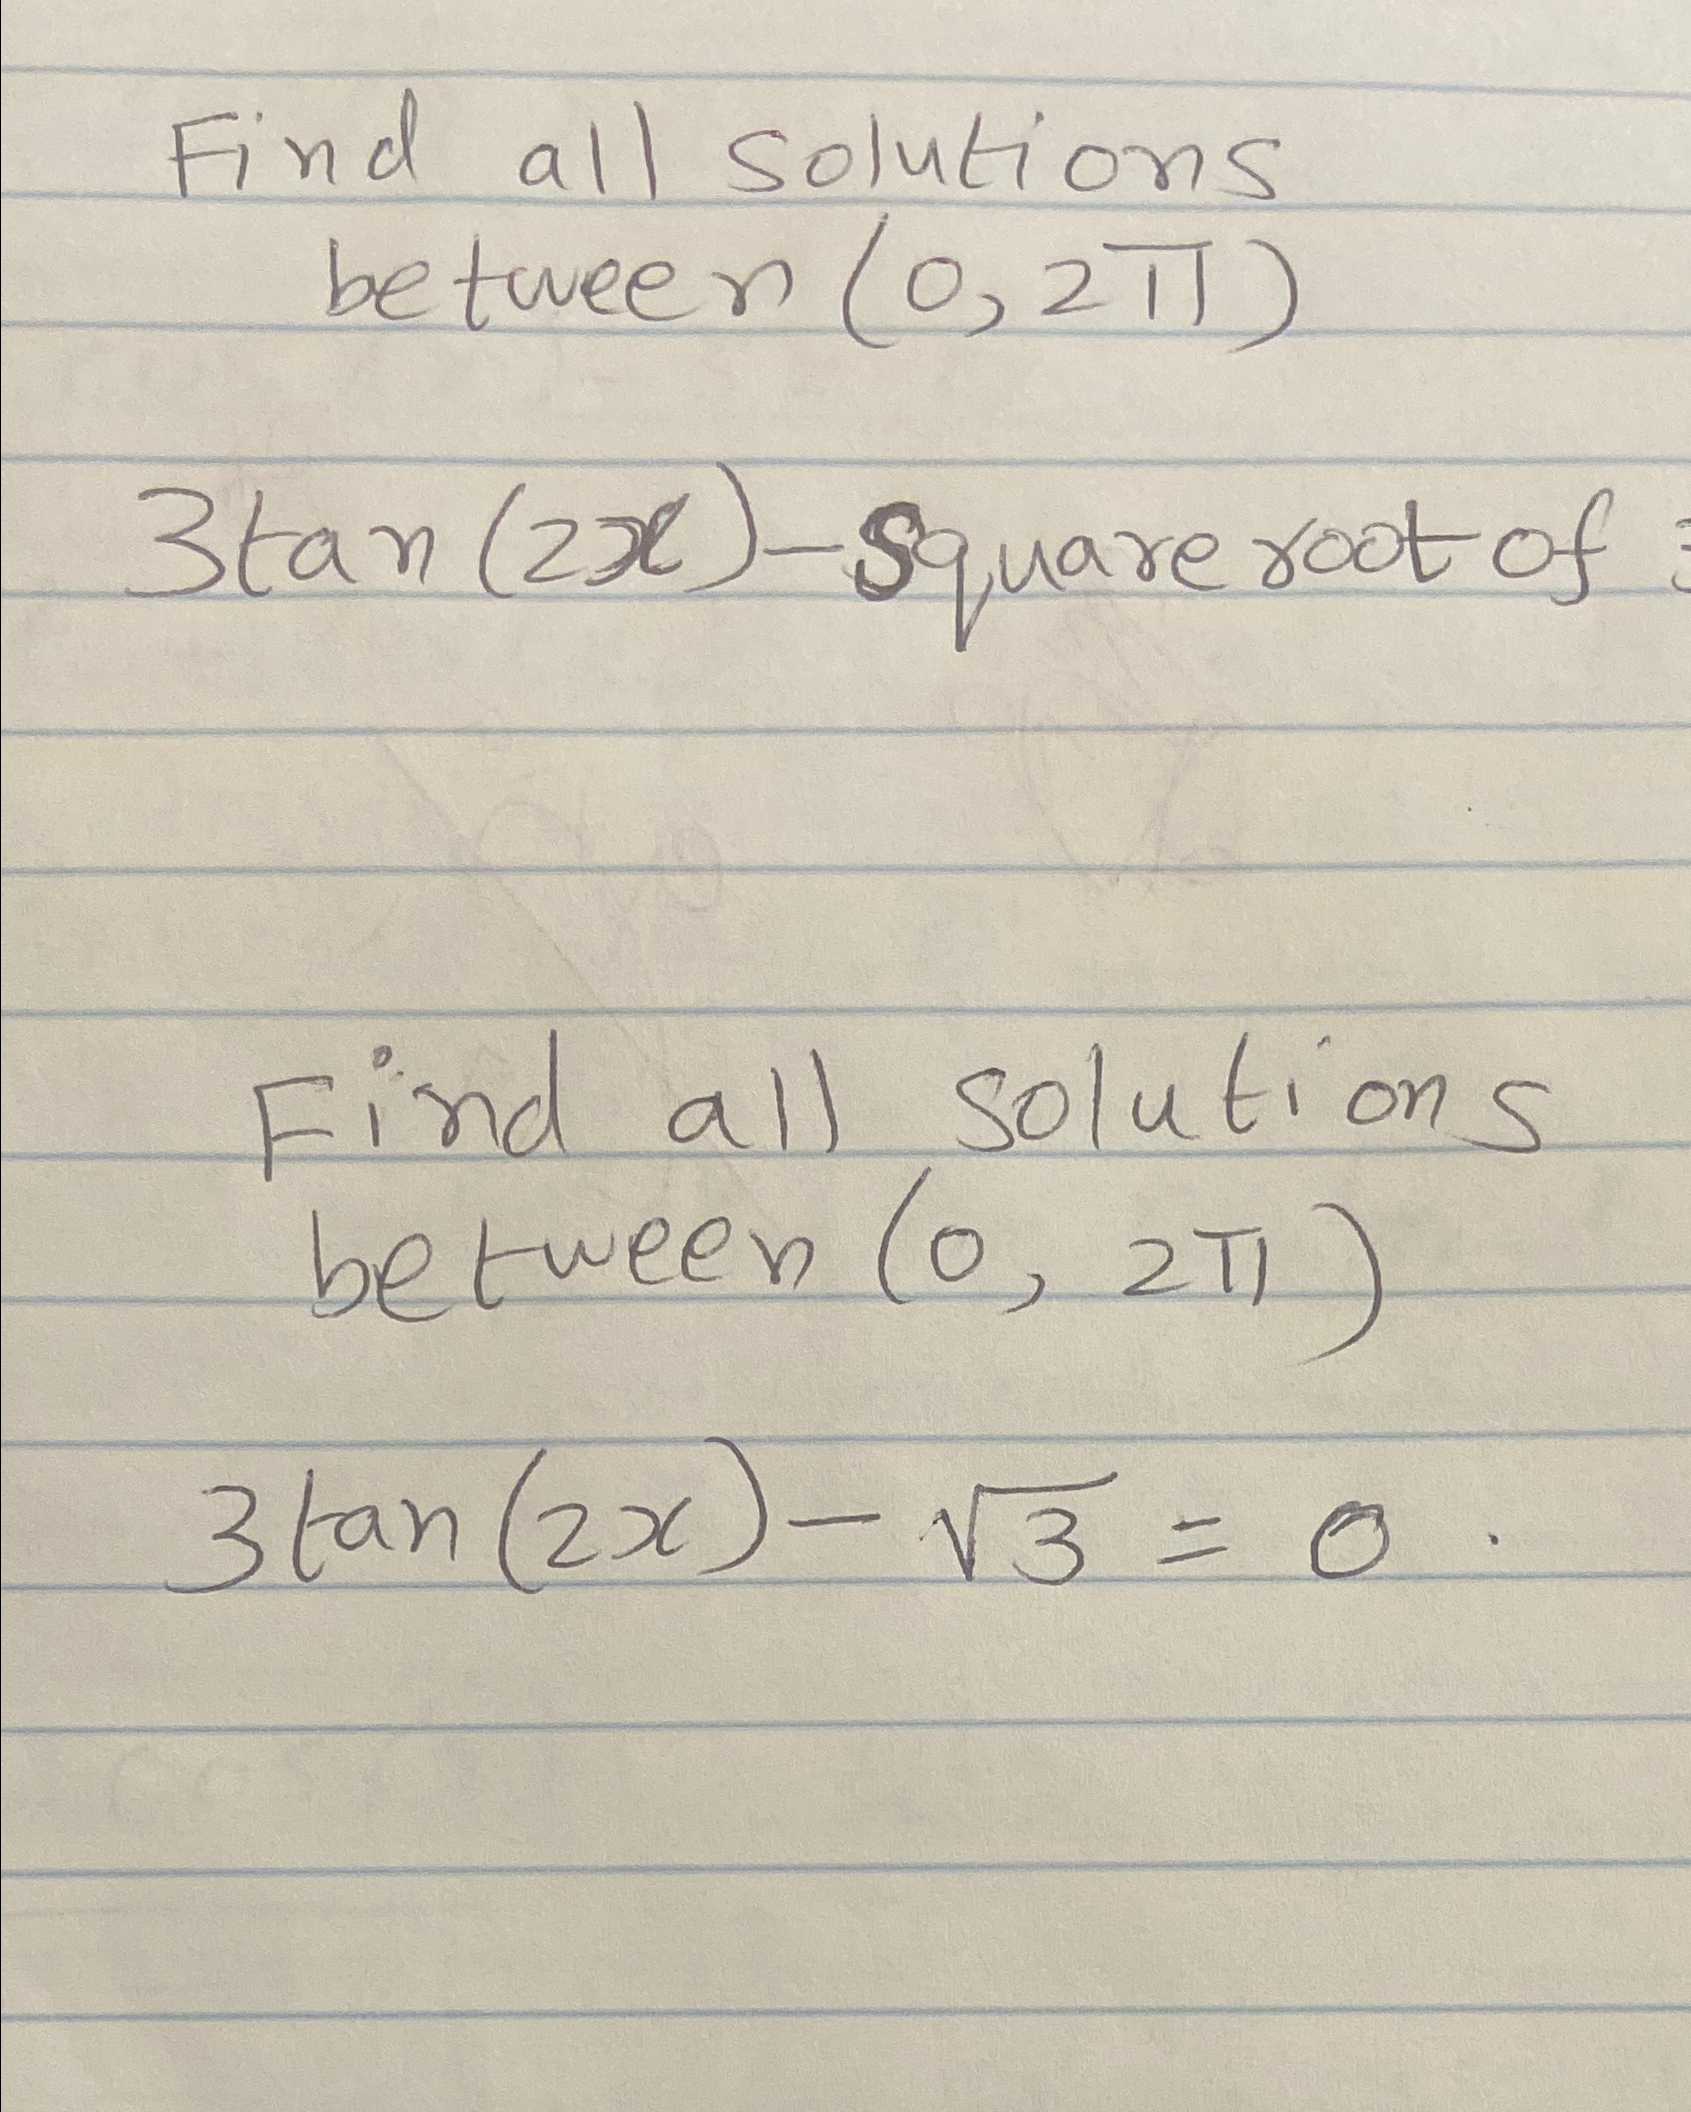 Find all solutions
between (0, 2π)
3tan(2x) - Square root of
Find all solutions
between (0, 2π)
3tan(2x) - √3 = 0.